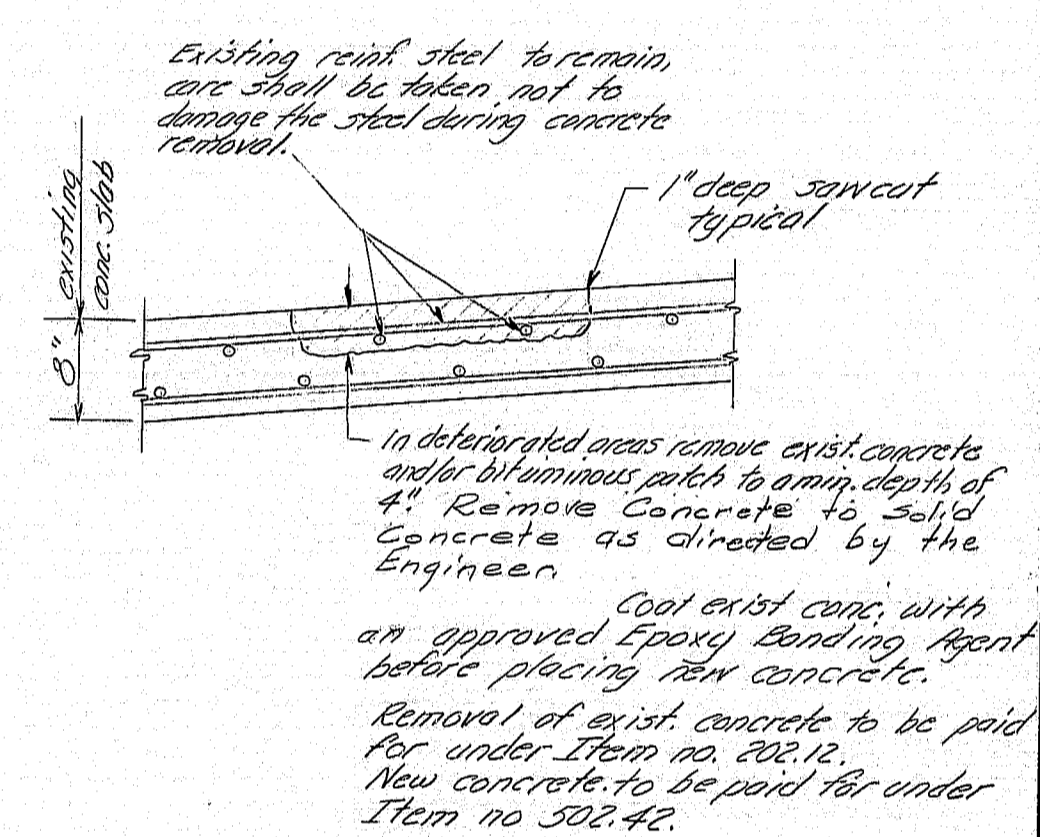 Existing reinf. steel to remain,
care shall be taken not to
damage the steel during concrete
removal.
existing
conc. slab
8"
1" deep sawcut
typical
In deteriorated areas remove exist. concrete
and/or bituminous patch to a min. depth of
4". Remove Concrete to Solid
Concrete as directed by the
Engineer.
Coat exist conc. with
an approved Epoxy Bonding Agent
before placing new concrete.
Removal of exist. concrete to be paid
for under Item no. 202.12.
New concrete to be paid for under
Item no 502.42.